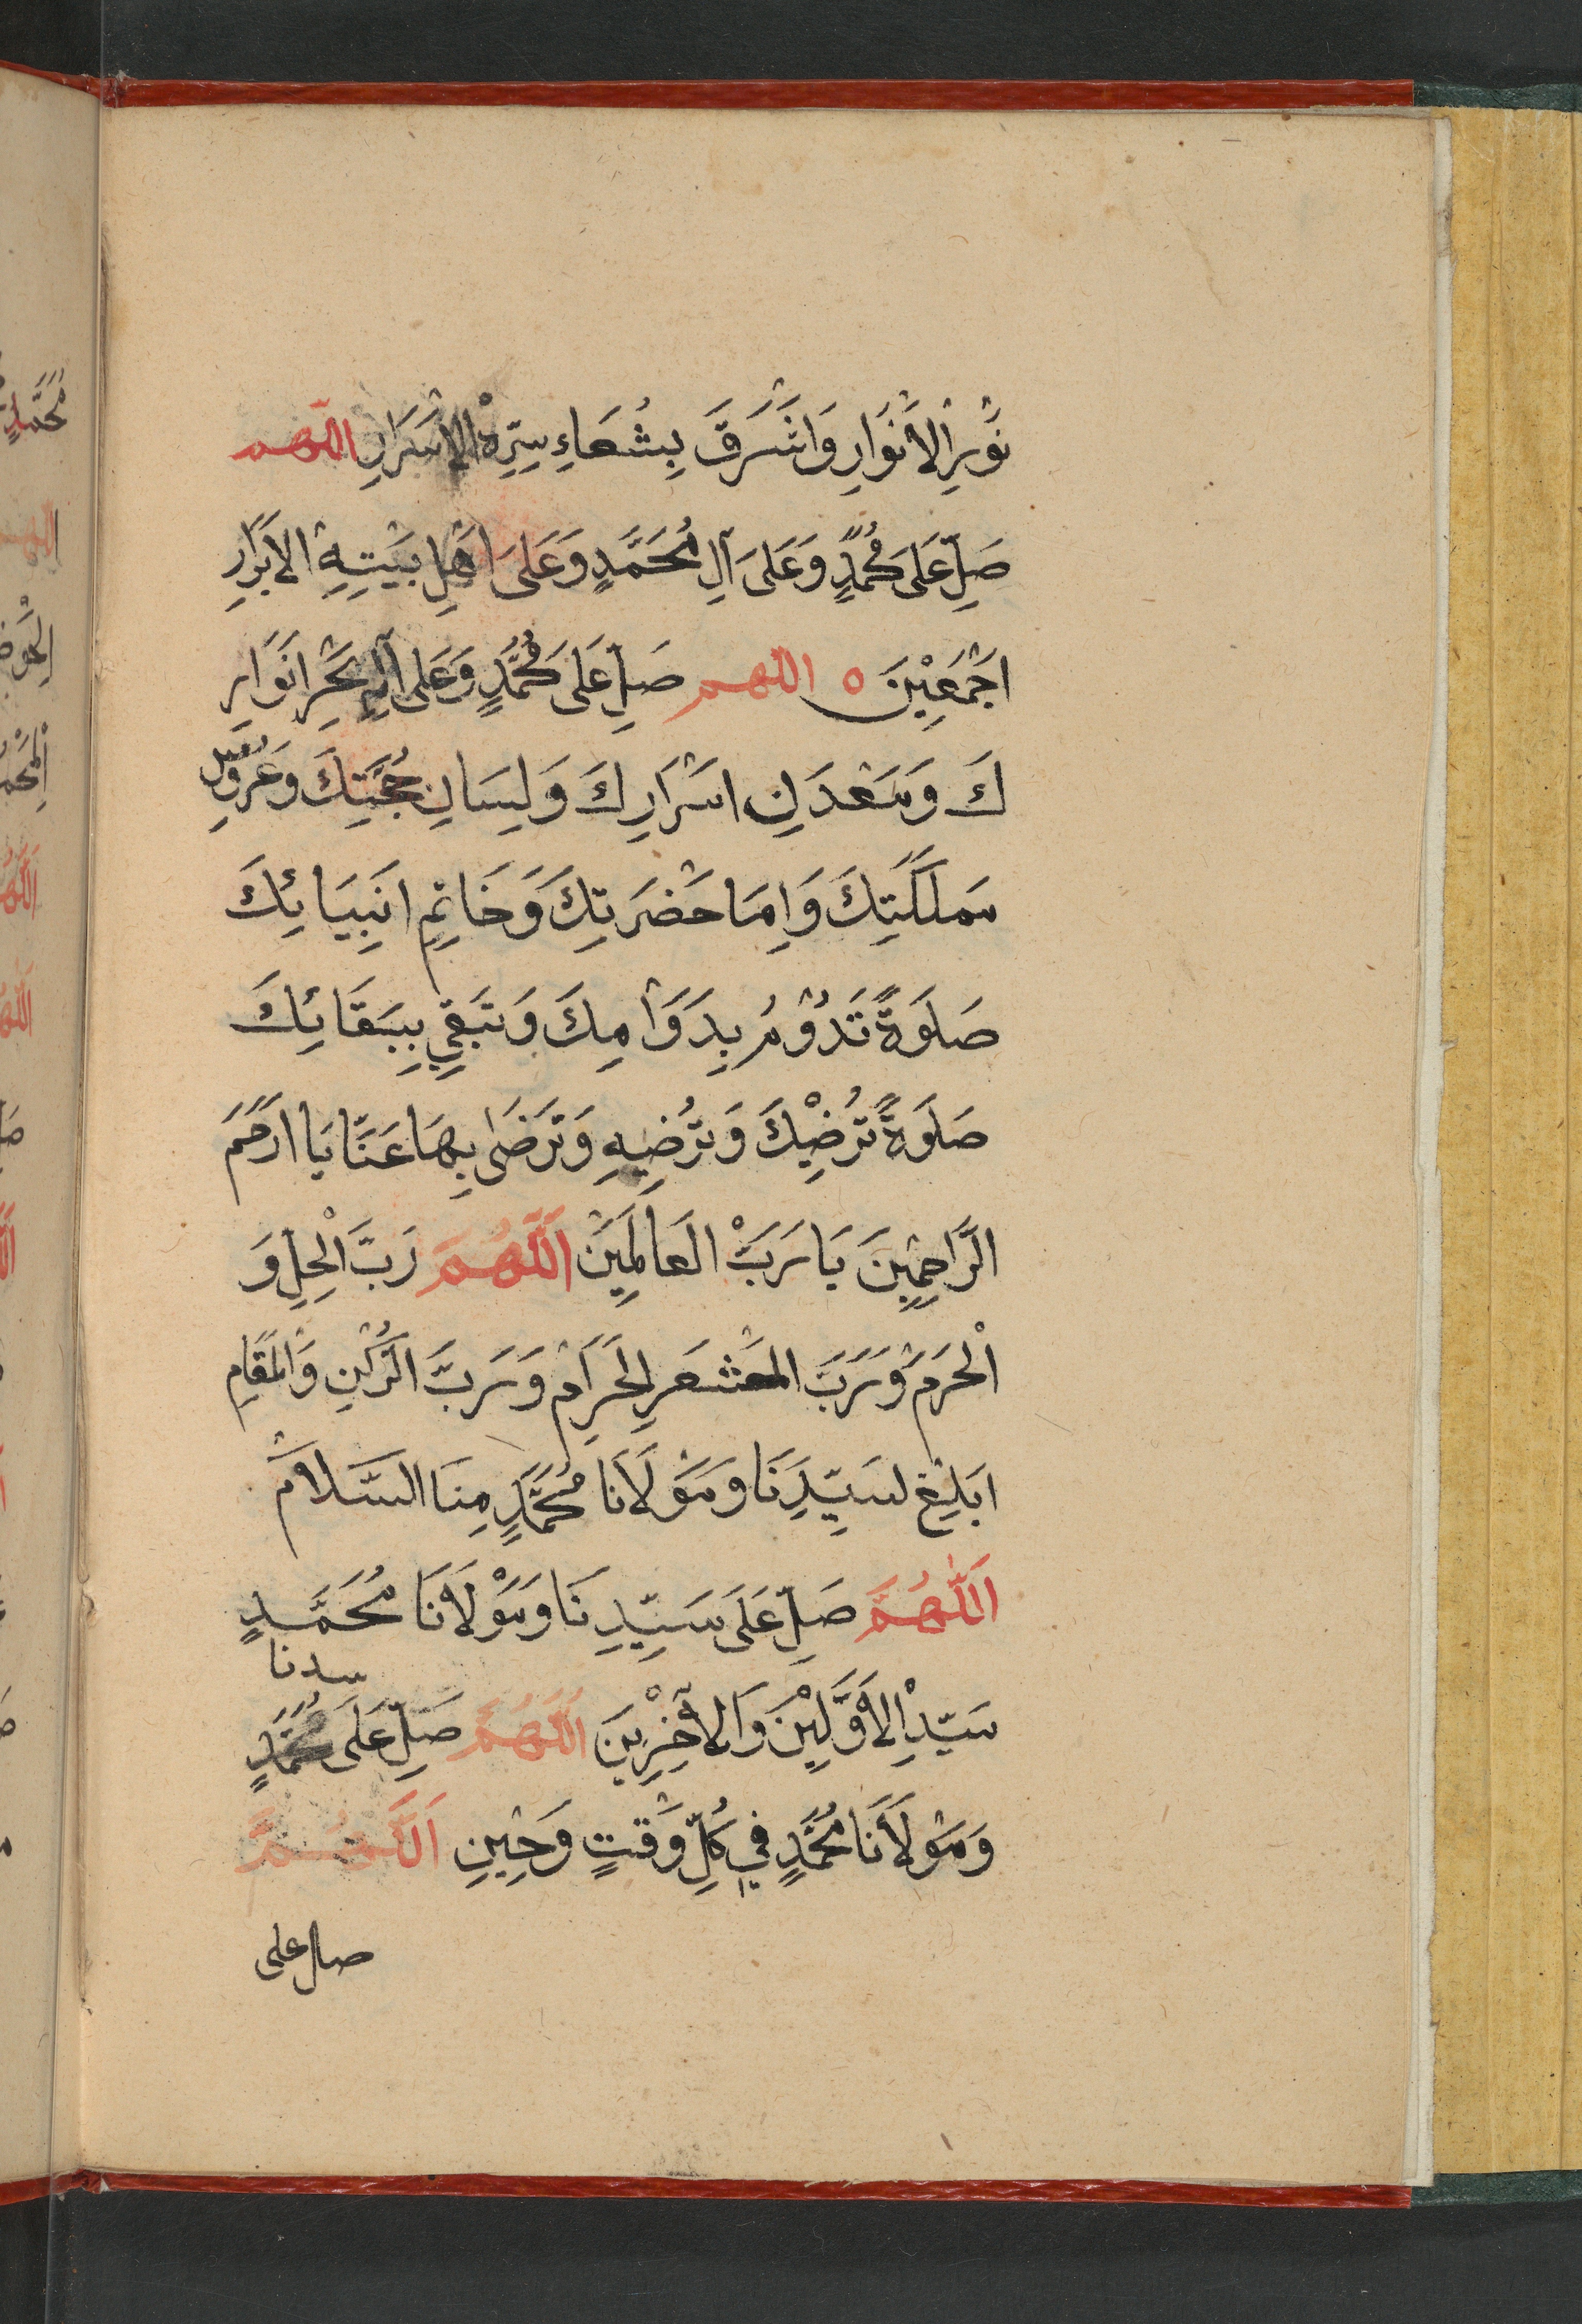 نُوْرِالْاَنْوَارِ وَاَشْرَقَ بِشُعَاءِ سِرِّهِ الْاَسْرَارِ اللّهم
صَلِّ عَلَى مُحَمَّدٍ وَعَلَى آلِ مُحَمَّدٍ وَعَلَى اَهْلِ بَيْتِهِ الْاَبْرَارِ
اَجْمَعِيْنَ ٥ اللّهم صَلِّ عَلَى مُحَمَّدٍ وَعَلَى آلِهِ بَحْرِ اَنْوَارِ
كَ وَمَعْدَنِ اَسْرَارِكَ وَلِسَانِ حُجَّتِكَ وَعَرُوْسِ
مَمْلَكَتِكَ وَاِمَا حَضْرَتِكَ وَخَاتِمِ اَنْبِيَائِكَ
صَلَوةً تَدُوْمُ بِدَوَامِكَ وَتَبْقٰى بِبَقَائِكَ
صَلَوةً تُرْضِيْكَ وَتُرْضِيْهِ وَتَرْضَى بِهَا عَنَّا يَا اَرْحَمَ
الرَّاحِمِيْنَ يَا رَبَّ الْعَالَمِيْنَ اَللّٰهُمَّ رَبَّ الْحِلِّ وَ
اْلحَرَمِ وَرَبَّ المَشْعَرِ الْحَرَامِ وَرَبَّ الرُّكْنِ وَالْمَقَامِ
اَبْلِغْ لسَيِّدِنَا وَمَوْلَانَا مُحَمَّدٍ مِنَا السَّلَامْ
اَللّٰهُمَّ صَلِّ عَلَى سَيِّدِنَا وَمَوْلَانَا مُحَمَّدٍ
سَيِّدِ الْاَوَّلِيْنَ وَالْاٰخِرِيْنَ اَللّٰهُمَّ صَلِّ عَلَى سدنا مُحَمَّدٍ
وَمَوْلَانَا مُحَمَّدٍ فِي كُلِّ وَقْتٍ وَحِيْنٍ اَللّٰهُمَّ
صل على